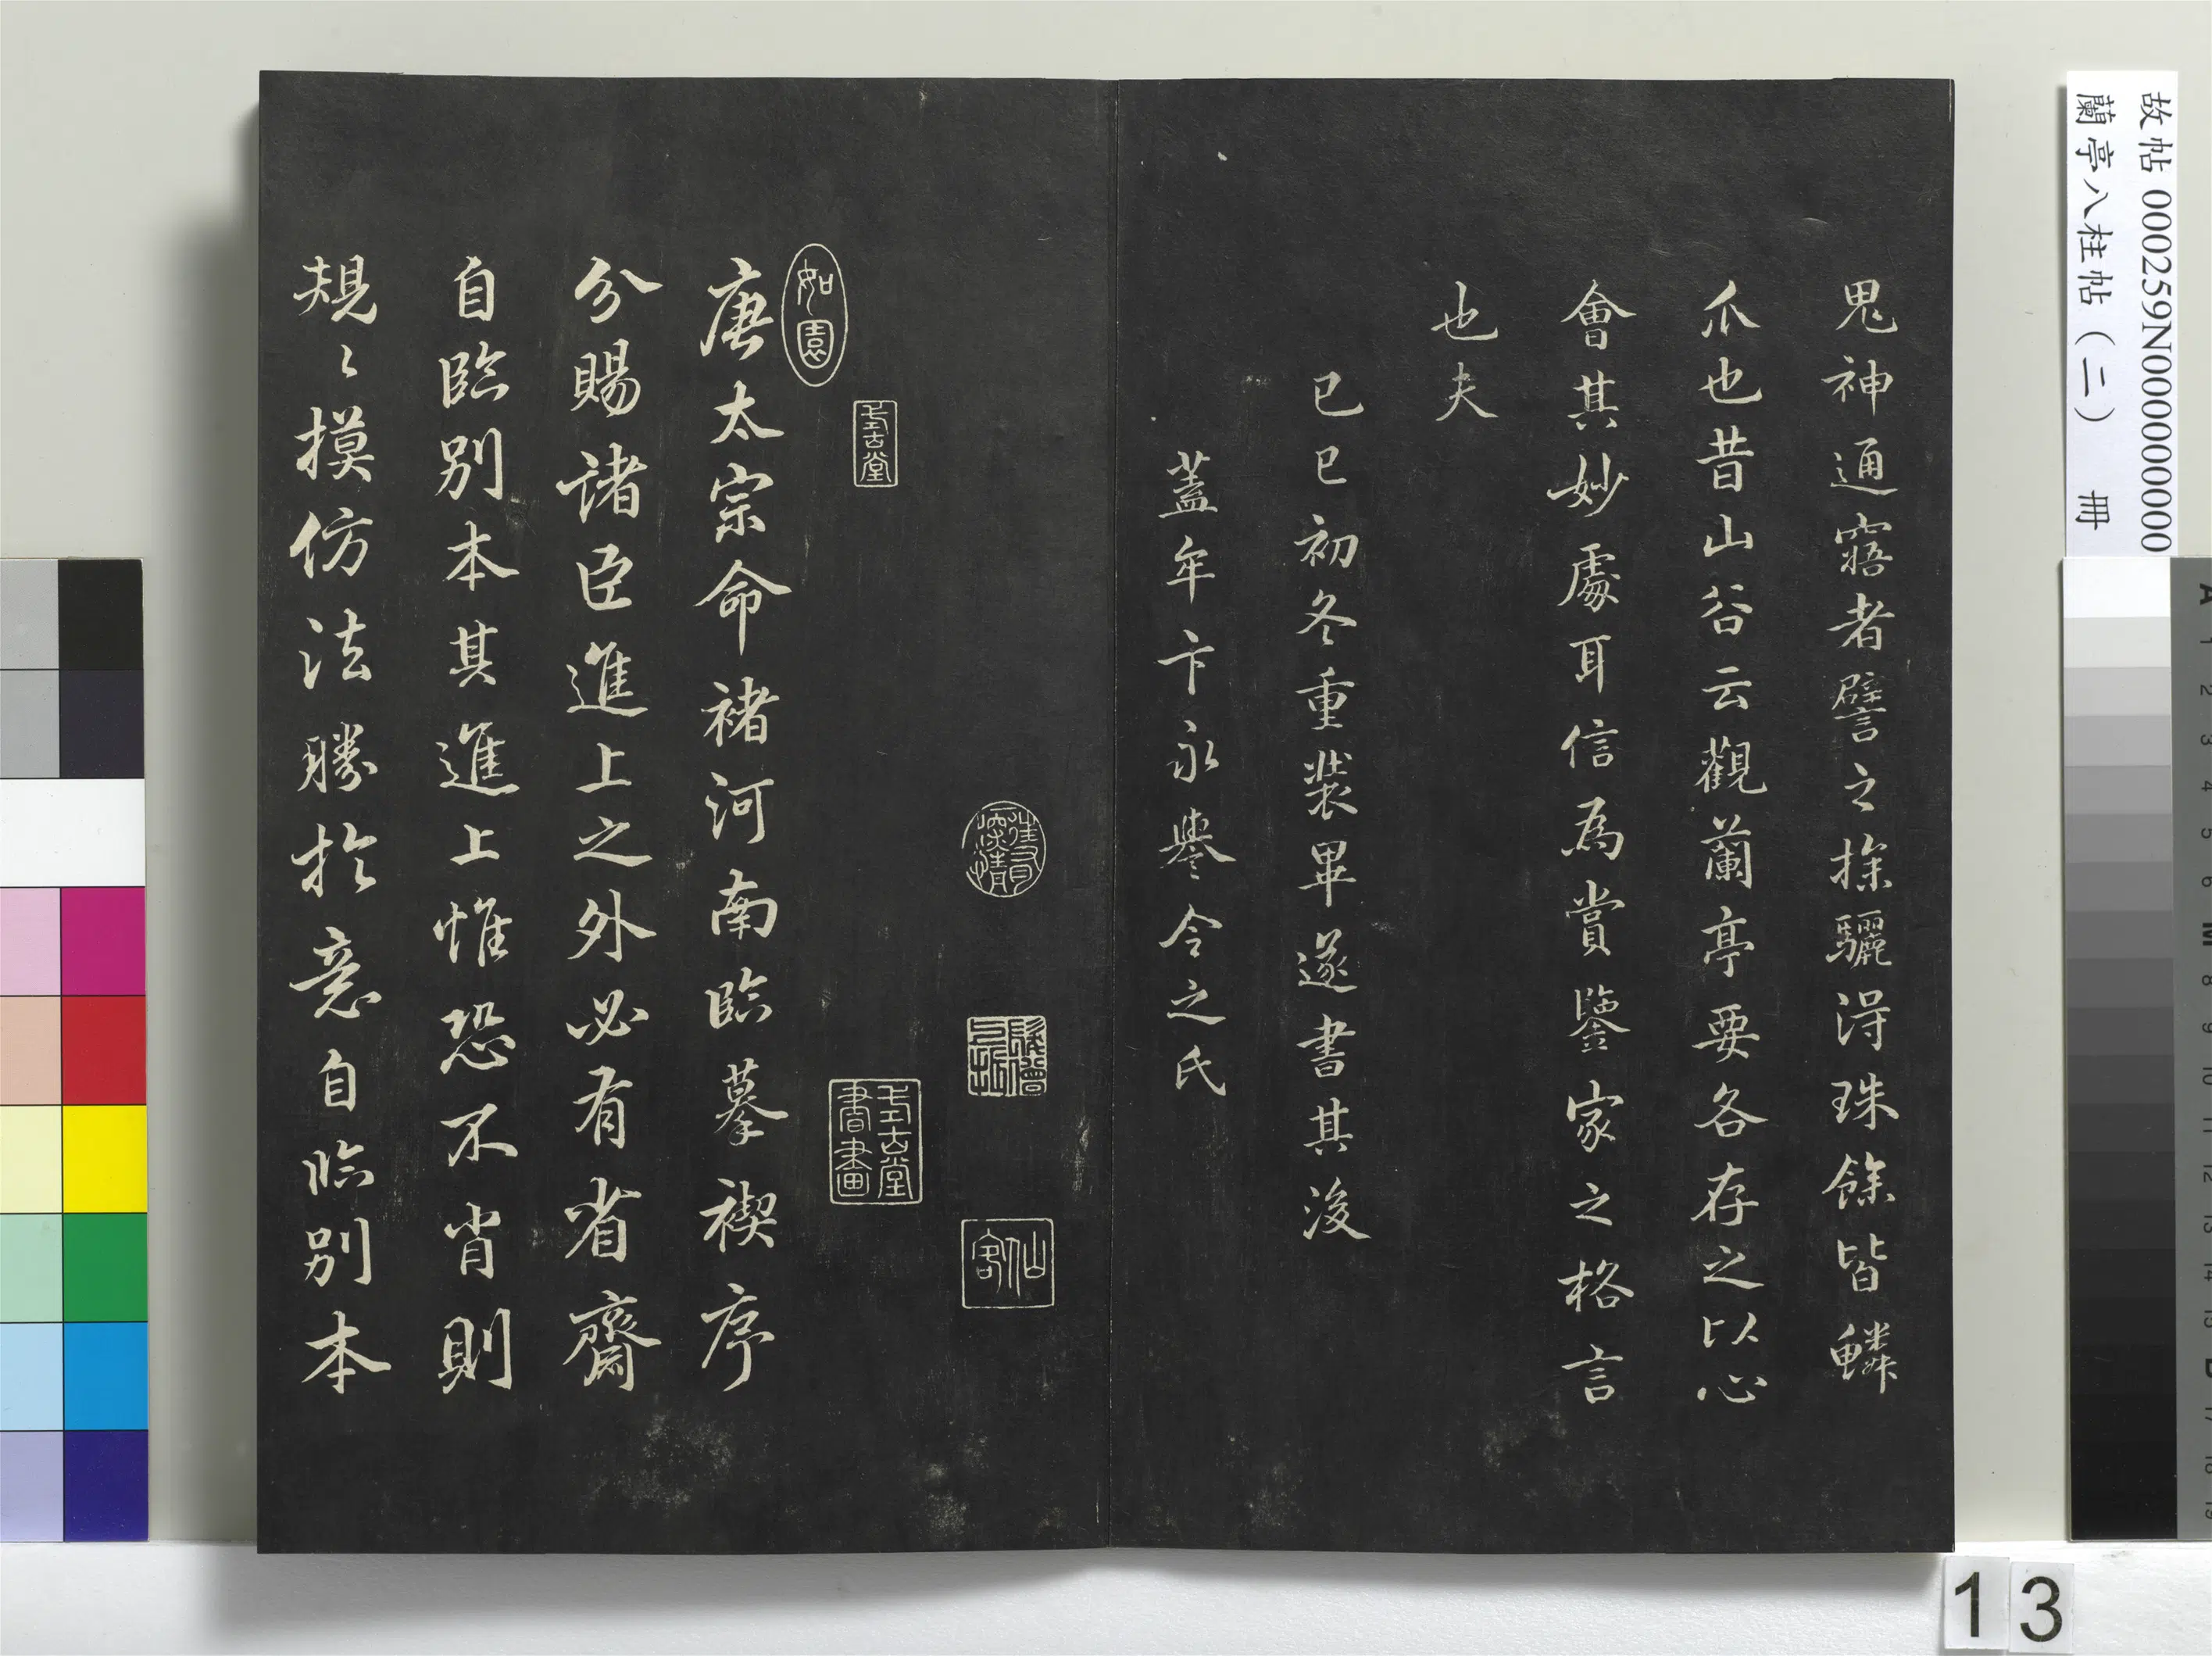 鬼神通寤者譬之探驪淂珠餘皆鱗
爪也昔山谷云觀蘭亭要各存之以心
會其妙處耳信為賞鑒家之格言
也夫
已巳初冬重裝畢遂書其後
蓋牟卞永譽令之氏
仙客
式古堂
式古堂書畫
如園
唐太宗命褚河南臨摹禊序
分賜諸臣進上之外必有省齋
自臨別本其進上惟恐不肖則
規〻摸仿法勝於意自臨別本
故帖 000259N000000000
蘭亭八柱帖(二) 冊
13